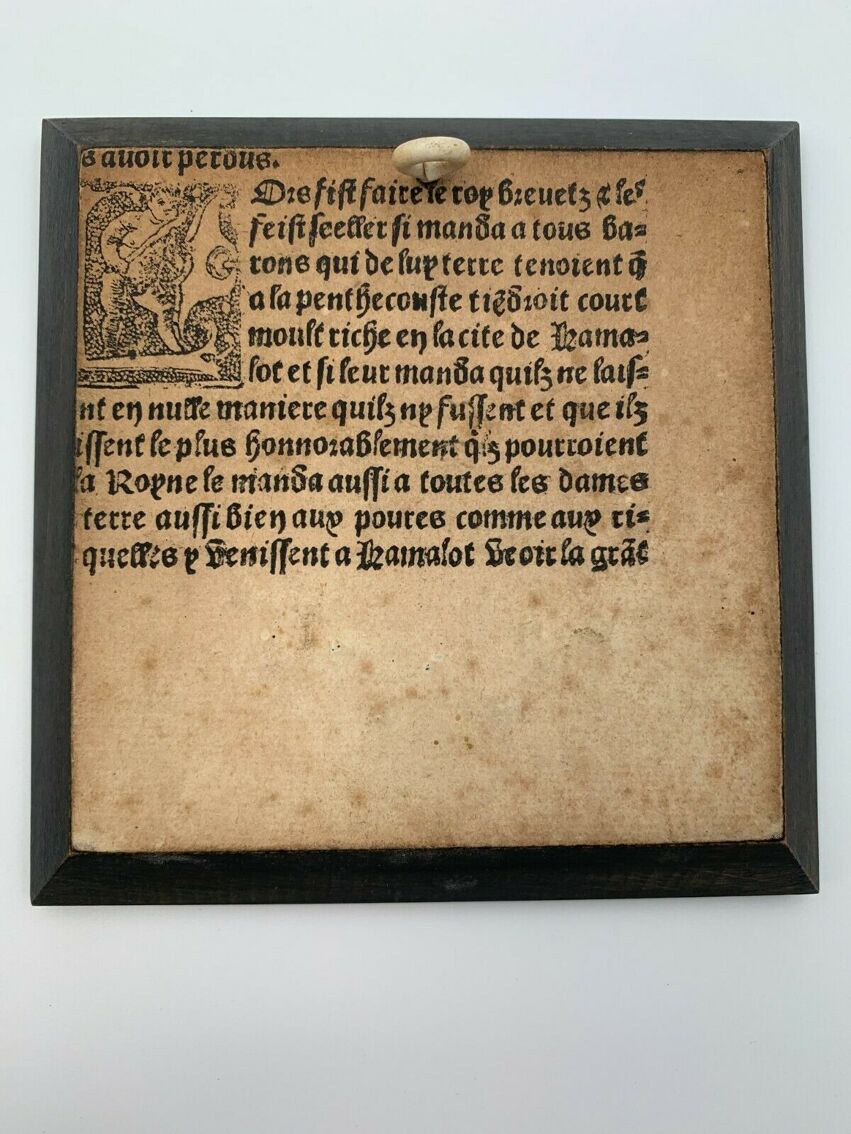 s auoir perdus.
Ors fist faire le roy breuetz ⁊ les
feist seeller si manda a tous ba⸗
rons qui de luy terre tenoient q̃
a la penthecouste tiẽdroit court
moult riche en la cite de Kama⸗
lot et si leur manda quilz ne lais⸗
nt en nulle maniere quilz ny fussent et que ilz
issent le plus honnorablement q̃lz pourroient
la Royne le manda aussi a toutes les dames
terre aussi bien aux poures comme aux ri⸗
quelles y venissent a Kamalot veoir la grãt